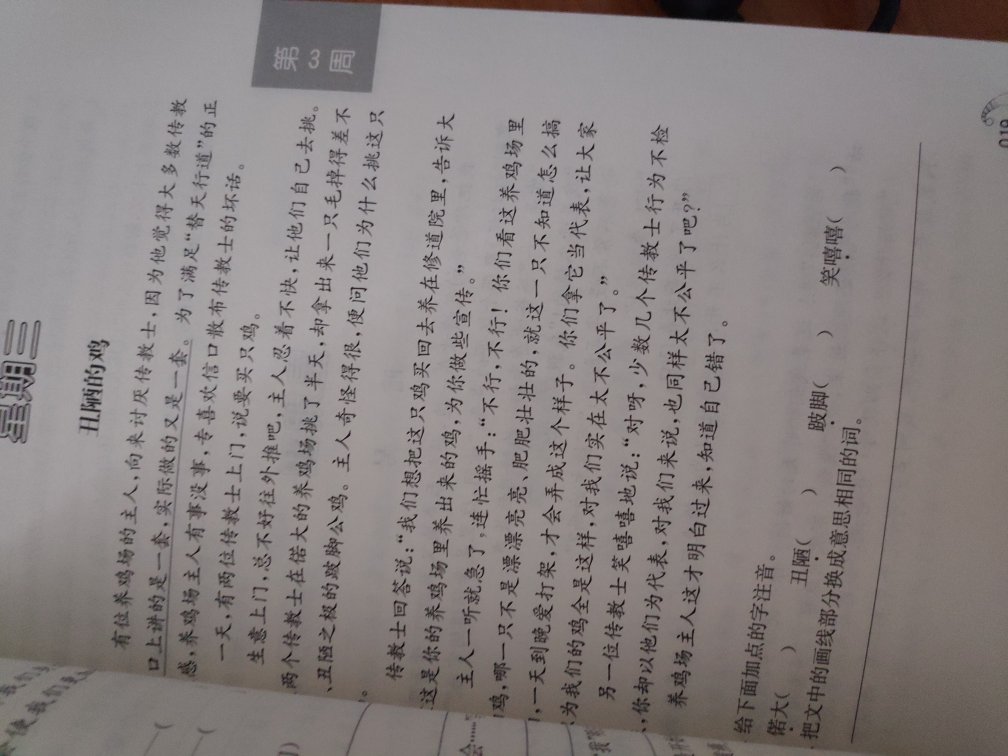 第
3
周
星期三
丑陋的鸡
有位养鸡场的主人，向来讨厌传教士，因为他觉得大多数传教
口上讲的是一套，实际做的又是一套。为了满足“替天行道”的正
感，养鸡场主人有事没事，专喜欢信口散布传教士的坏话。
一天，有两位传教士上门，说要买只鸡。
生意上门，总不好往外推吧，主人忍着不快，让他们自己去挑。
两个传教士在偌大的养鸡场挑了半天，却拿出来一只毛掉得差不
、丑陋之极的跛脚公鸡。主人奇怪得很，便问他们为什么挑这只
。
传教士回答说：“我们想把这只鸡买回去养在修道院里，告诉大
这是你的养鸡场里养出来的鸡，为你做些宣传。”
主人一听就急了，连忙摇手：“不行，不行！你们看这养鸡场里
鸡，哪一只不是漂漂亮亮、肥肥壮壮的，就这一只不知道怎么搞
，一天到晚爱打架，才会弄成这个样子。你们拿它当代表，让大家
为我们的鸡全是这样，对我们实在太不公平了。”
另一位传教士笑嘻嘻地说：“对呀，少数几个传教士行为不检
，你却以他们为代表，对我们来说，也同样太不公平了吧？”
养鸡场主人这才明白过来，知道自己错了。
给下面加点的字注音。
偌大（ ） 丑陋（ ） 跛脚（ ） 笑嘻嘻（ ）
把文中的画线部分换成意思相同的词。